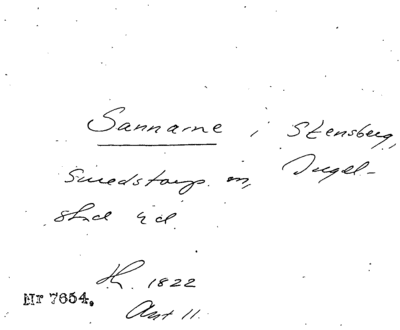 Sannarne i Stensberg,
Smedstorps sn, Ingel-
stad hd.
1822
Nr 7654.
Akt 11.